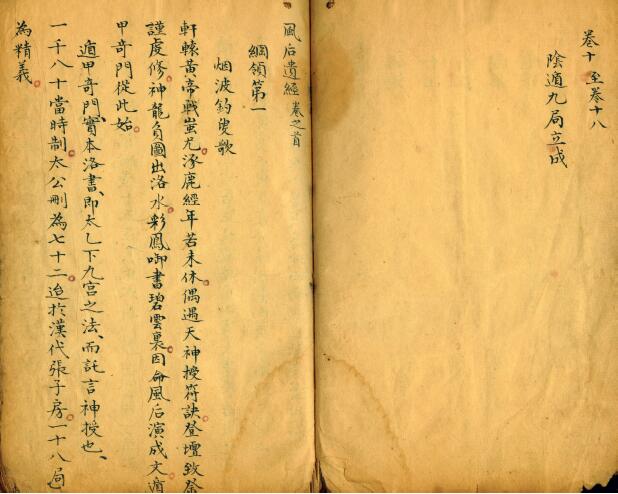 卷十至卷十八
陰遁九局立成
風后遺經 卷之首
綱領第一
烟波釣叟歌
軒轅黃帝戰蚩尤涿鹿經年若未休偶遇天神授符訣登壇致祭
謹虔修神龍負圖出洛水彩鳳啣書碧雲裏因命風后演成文遁
甲奇門從此始
遁甲奇門實本洛書、即太乙下九宮之法、而託言神授也、
一千八十當時制太公刪為七十二迨於漢代張子房一十八局
為精義